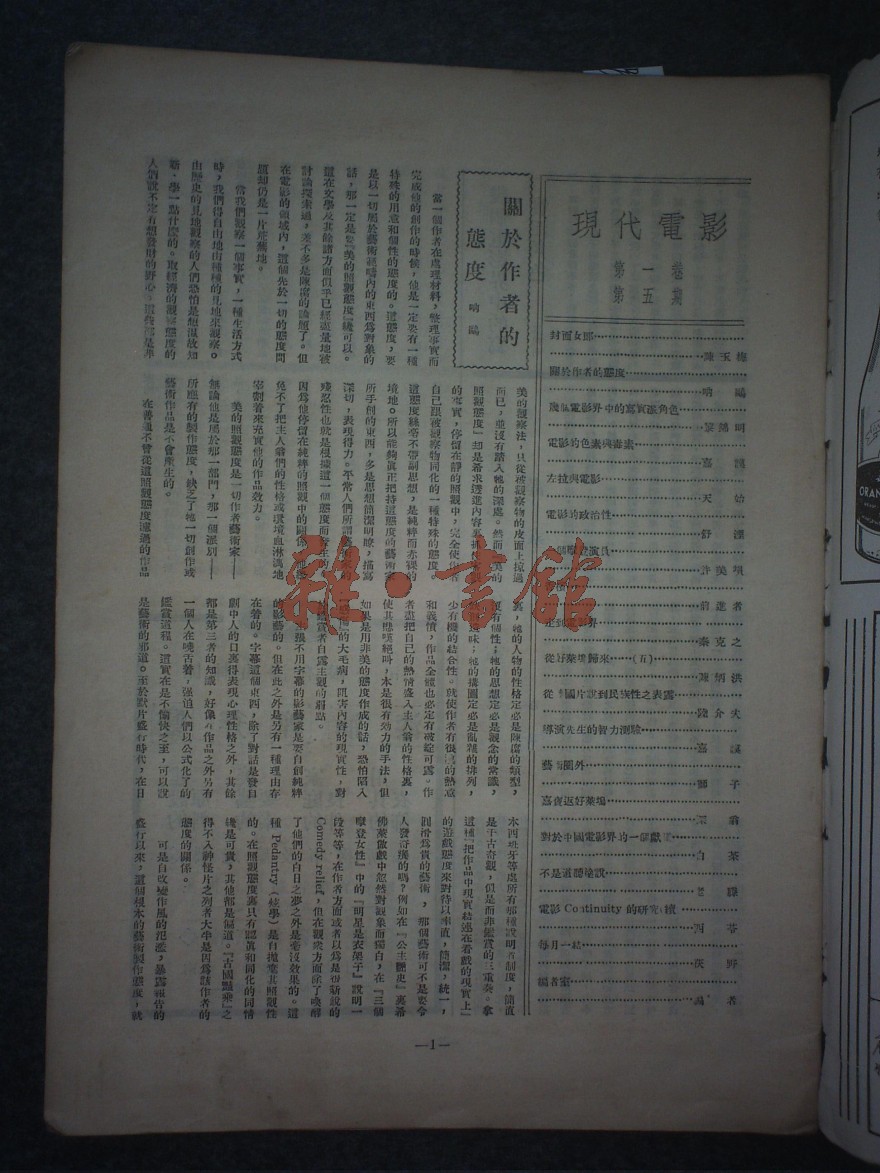 現代電影
第一卷
第五期
封面女郎……陳玉梅
關於作者的態度……吶鷗
幾個電影界中的寫實派角色……黎錦明
電影的色素與毒素……嘉謨
左拉與電影……天始
電影的政治性……舒湮
演員……許美塤
前進者
秦克之
從好萊塢歸來……(五)……陳炳洪
國片說到民族性之表露……陳介夫
導演先生的智力測驗……嘉謨
圈外……獅子
嘉寶返好萊塢
對於中國電影界的一個獻……白茶
不是
電影 Continuity 的研究(續)……西苓
每月一結
編者室……編者
關於作者的
態度
吶鷗
當一個作者在處理材料,整理事實而
完成他的創作的時候,他是一定要有一種
特殊的用意和個性的態度的。這態度,要
是以一切屬於藝術範疇內的東西爲對象的
話,那一定是要『美的照觀態度』纔可以。
這在文學及其餘諸方面似乎已經盡量地被
討論探索過,差不多是陳腐的論題了。但
在電影的領域內,這個先於一切的態度問
題却仍是一片荒蕪地。
當我們觀察一個事實,一種生活方式
時,我們得自由地由種種的見地來觀察。
由歷史的見地觀察的人們恐怕是想溫故知
新,學一點什麼的。取經濟的觀察態度的
人們說不定有想發財的野心。這些都是非
美的觀察法,只從被觀察物的皮面上掠過
而已,並沒有踏入牠的深處。然而
照觀態度』却是希求透進內容裏
的事實,停留在靜的照觀中,完全使
自己跟被觀察物同化的一種特殊的態度。
這態度絲毫不帶副思想,是純粹而赤裸的
境地。所以能夠真正把持這態度的藝術家
所手創的東西,多是思想簡潔明瞭,描寫
深切,表現得力。平常人們所謂
殘忍性也就是根據這一個態度而
因爲他停留在純粹的照觀中的關係
免不了把主人翁們的性格或環境血淋漓地
宰割着來充實他的作品效力。
美的照觀態度是一切作者藝術家——
無論他是屬於那一部門,那一個派別——
所應有的製作態度,缺乏了牠一切創作或
藝術作品是不會產生的。
在普通不曾從這照觀態度濾過的作品
裏,牠的人物的性格定必是陳腐的類型,
沒有個性;牠的思想定必是觀念的常識,
牠的構圖定必是亂雜的排列,
少有機的結合性。就使作者有很的熱意
和義憤,作品全體也必定有破綻可露。作
者盡把自己的熱情盛入主人翁的性格裏,
使其悲嘆絕叫,本是很有効力的手法,但
如果是用非美的態度作成的話,恐怕陷入
的大毛病,阻害內容的現實性,對
者自露主觀的弱點。
主張不用字幕的影藝家是要自創純粹
的影藝的。但在此之外是另有一種理由存
在着的。字幕這個東西,除了對話是發自
劇中人的口裏得表現心理性格之外,其餘
都是第三者的知識,好像在作品之外另有
一個人在嘵舌着,强迫人們以公式化了的
鑑賞過程。這實在是不愉快之至,可以說
是藝術的邪道。至於默片盛行時代,在日
本西班牙等處所有那種說明者制度,簡直
是千古奇觀,但是而非鑑賞的三重奏。拿
這種『把作品中現實結連在看戲的現實上』
的遊戲態度來對待以率直,簡潔,統一,
圓滑爲貴的藝術,那個藝術可不是要令
人發奇癢的嗎?例如在『公主艷史』裏希
佛萊做戲中忽然對觀象而獨白,在『三個
摩登女性』中的『明星是衣架子』說明一
段等等,在作者方面或者以爲是嶄新說的
Comedy relief,但在觀衆方面除了喚醒
了他們的白日之夢之外是毫沒效果的。這
種 Pedantry(衒學)是自拋棄其照觀性
的。在照觀態度裏只有認眞和同化的同情
纔是可貴,其他都是偏道。『古國豔乘』之
得不入神怪片之列者大半是因爲該作者的
態度的關係。
可是自改變作風的氾濫,暴露報告的
盛行以來,這個根本的藝術製作態度,就
—1—
雜·書館
ORAN